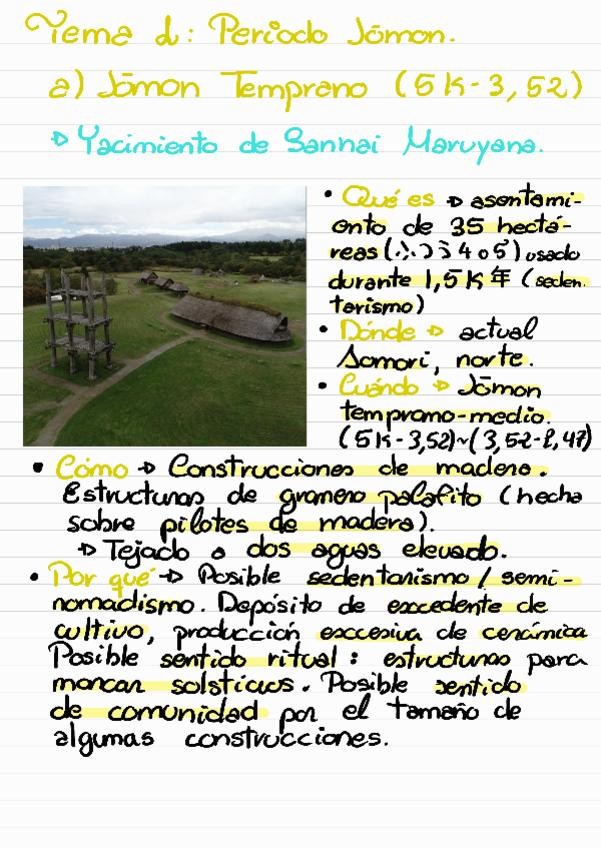 Tema 1: Periodo Jōmon.
a) Jōmon Temprano (5K-3,52)
Yacimiento de Sannai Maruyana.
• Qué es → asentami-
ento de 35 hectá-
reas (5) usado
durante 1,5K年 (seden.
tarismo)
• Dónde → actual
Aomori, norte.
• Cuándo → Jōmon
temprano-medio.
(5K-3,52)~(3,52-2,47)
• Cómo → Construcciones de madera.
Estructuras de granero palafito (hecha
sobre pilotes de madera).
→ Tejado a dos aguas elevado.
• Por qué → Posible sedentarismo / semi-
nomadismo. Depósito de excedente de
cultivo, producción excesiva de cerámica
Posible sentido ritual: estructuras para
marcar solsticios. Posible sentido
de comunidad por el tamaño de
algunas construcciones.